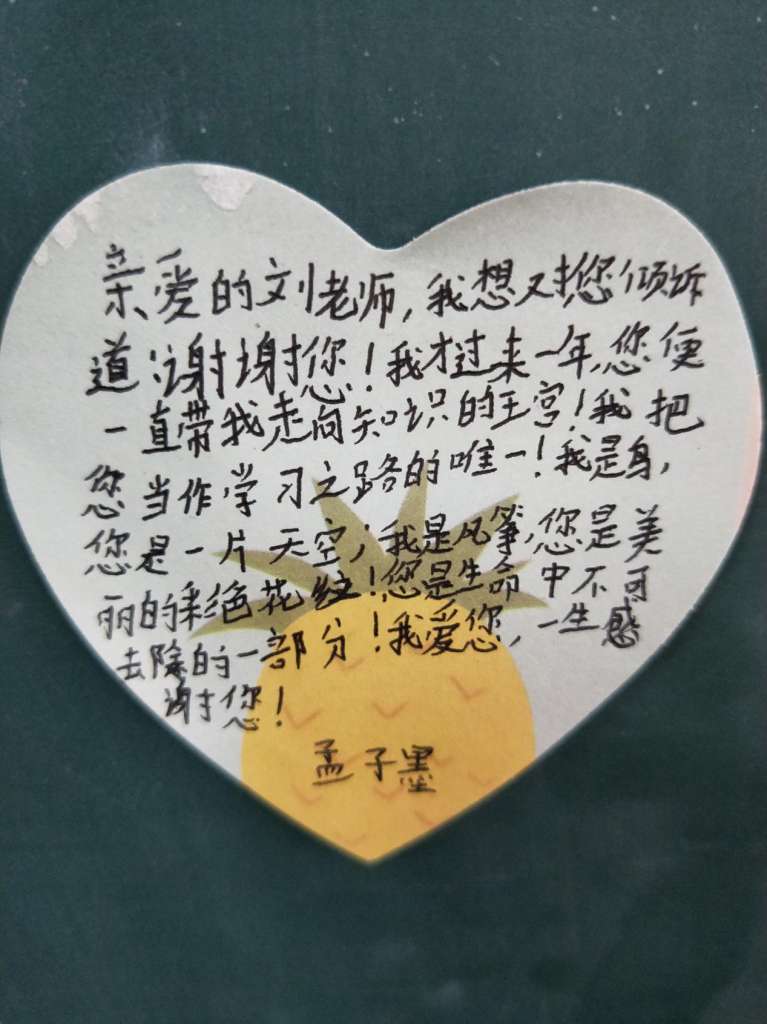 亲爱的刘老师,我想对您倾诉
道:谢谢您!我才过来一年,您便
一直带我走向知识的王宫!我把
您当作学习之路的唯一!我是身,
您是一片天空;我是风筝,您是美
丽的彩色花纹!您是生命中不可
去除的一部分!我爱您,一生感
谢您!
孟子墨